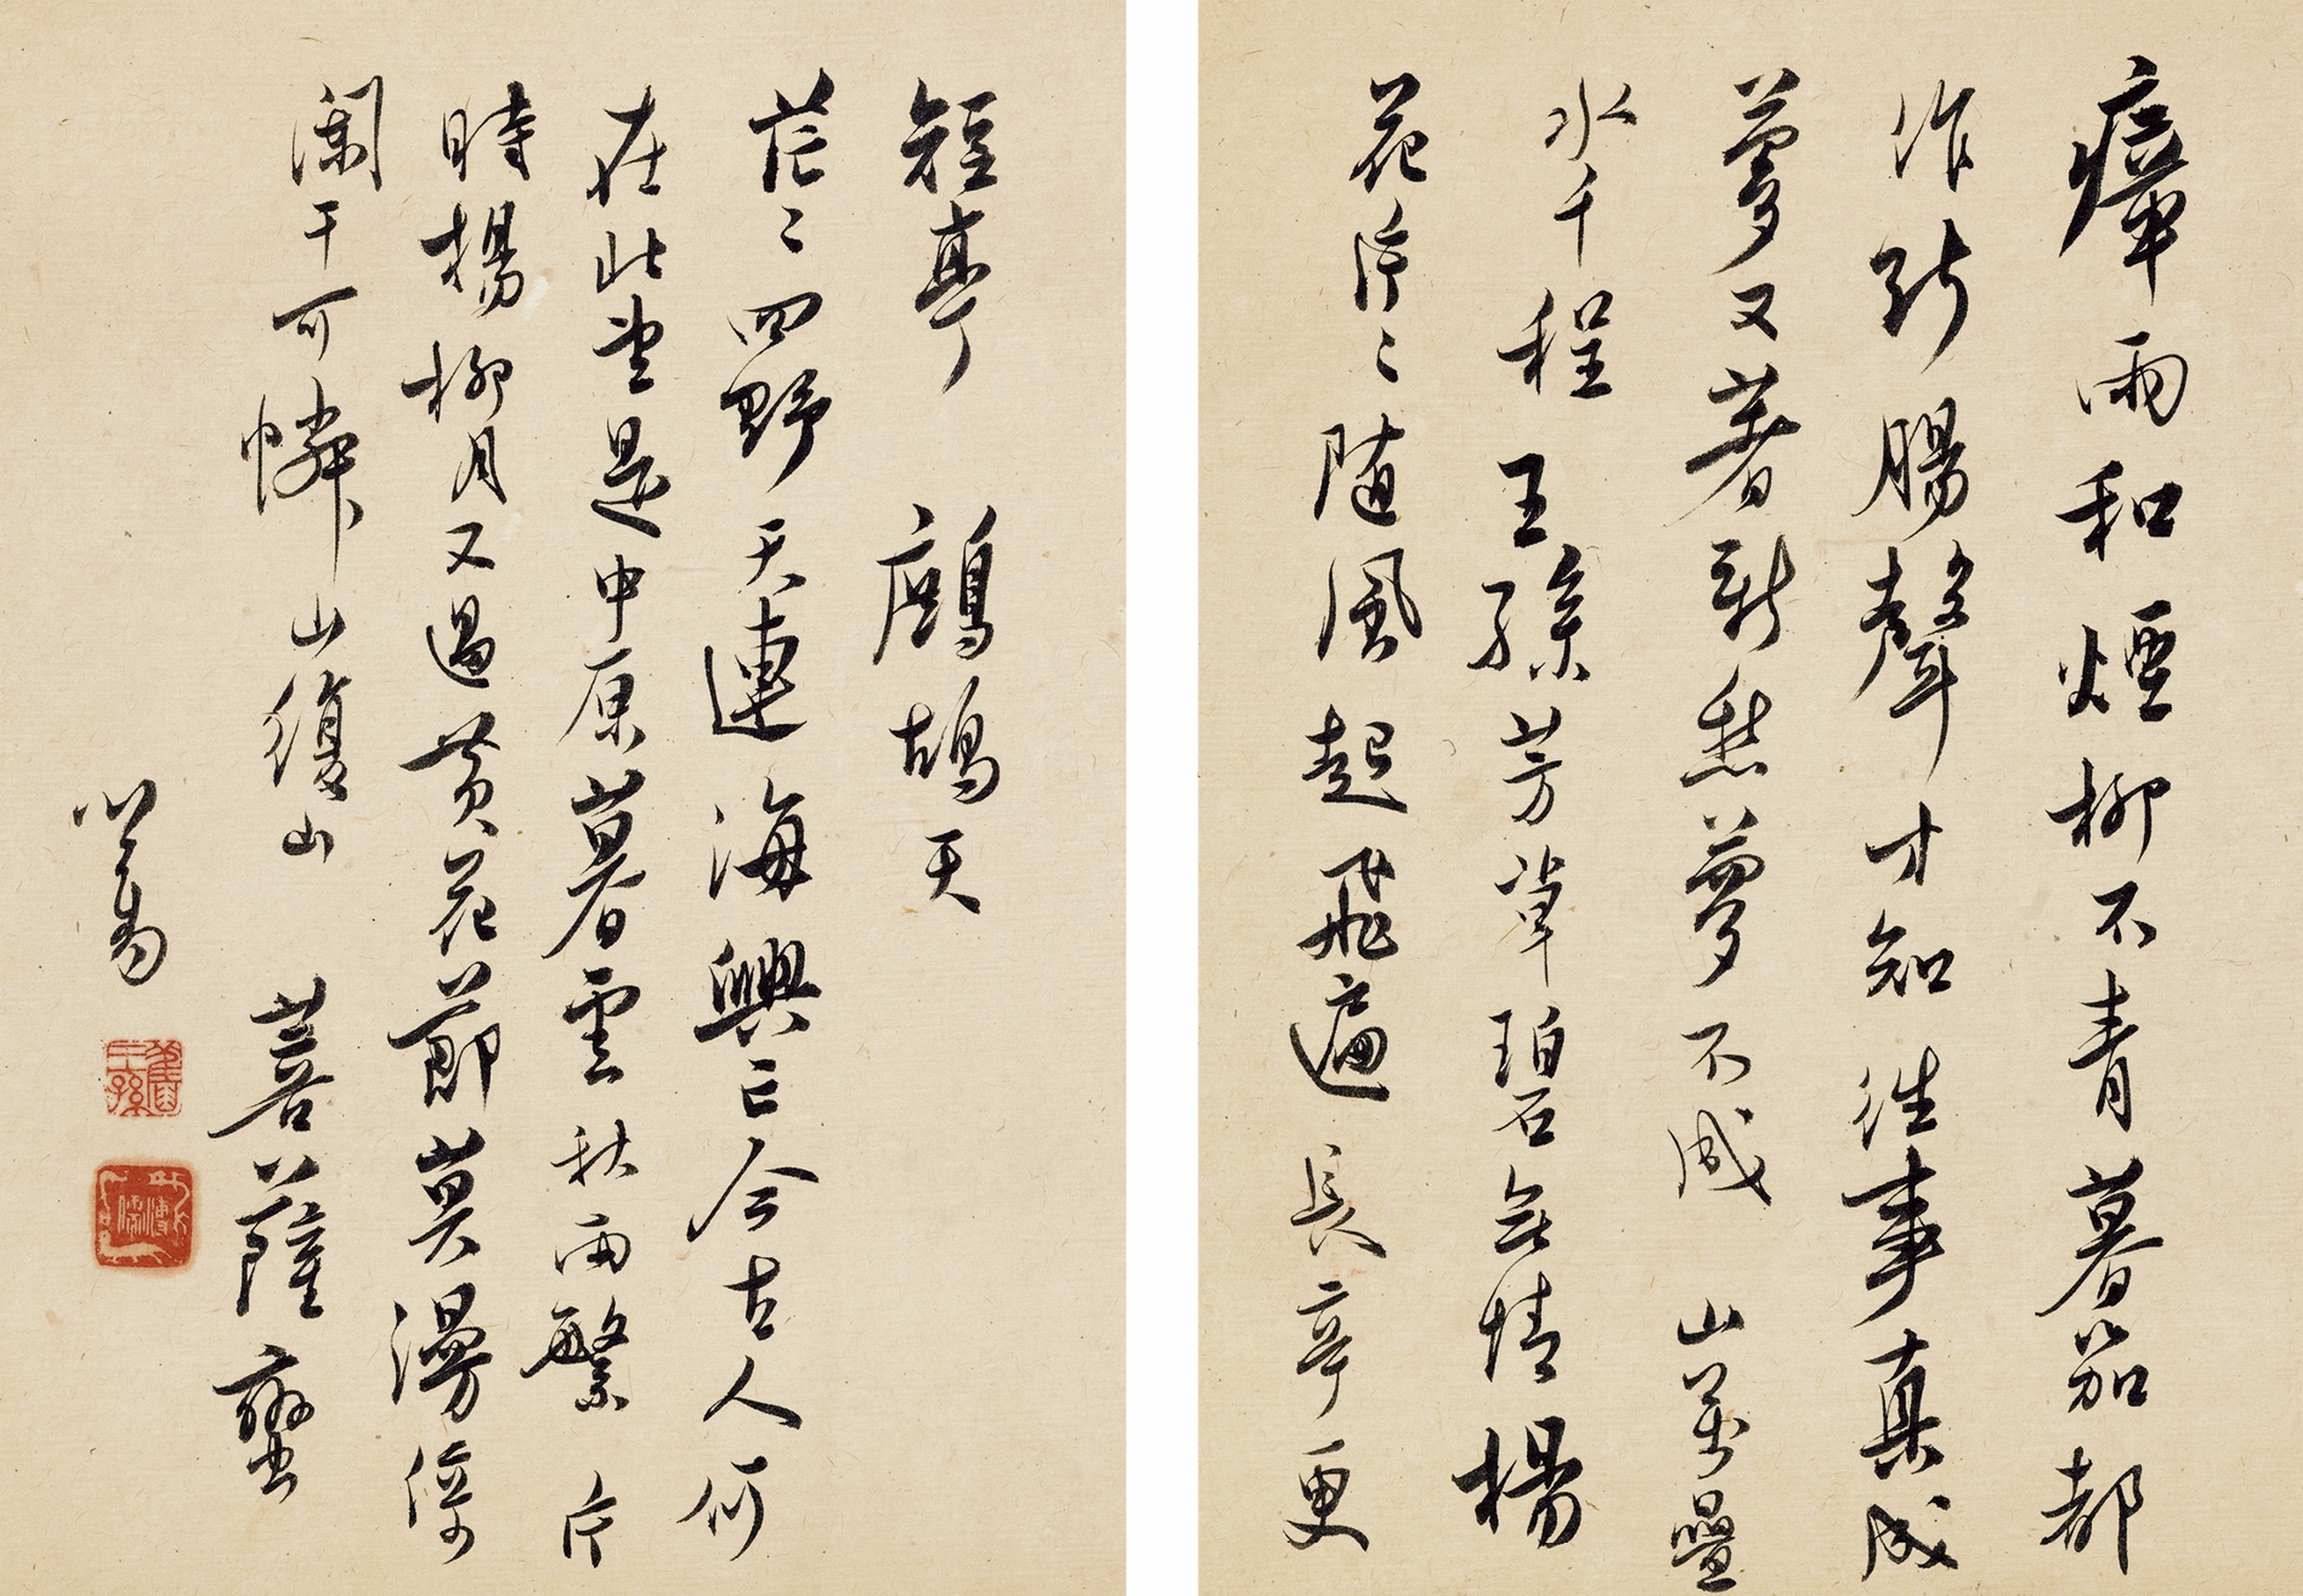 瘴雨和煙柳不青暮笳都
作斷腸聲才知往事真成
夢又著新愁夢不成山萬疊
水千程王孫芳草碧無情楊
花片〻隨風起飛遍長亭更
短亭　鷓鴣天
茫〻四野天連海興亡今古人何
在此望是中原暮雲秋雨繁片
時楊柳月又過黃花節莫漫倚
闌干可憐山復山　菩薩蠻
心畬
舊王孫
溥儒